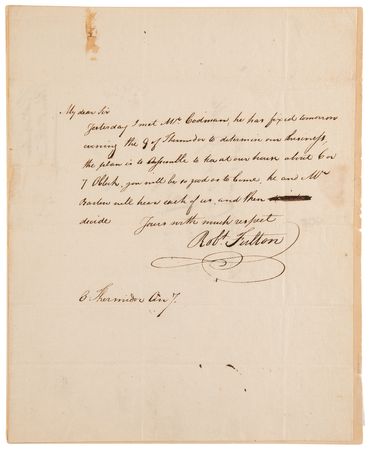 My dear Sir
Yesterday I met Mr Codman, he has fixed tomorrow
evening the 9 of Thermidor to determine our business
the plan is to Assemble to tea at our house about 6 or
7 Oclock, you will be so good as to come, he and Mr
Barlow will hear each of us, and then
decide Yours with much respect
Robt Fulton
8 Thermidor An 7.